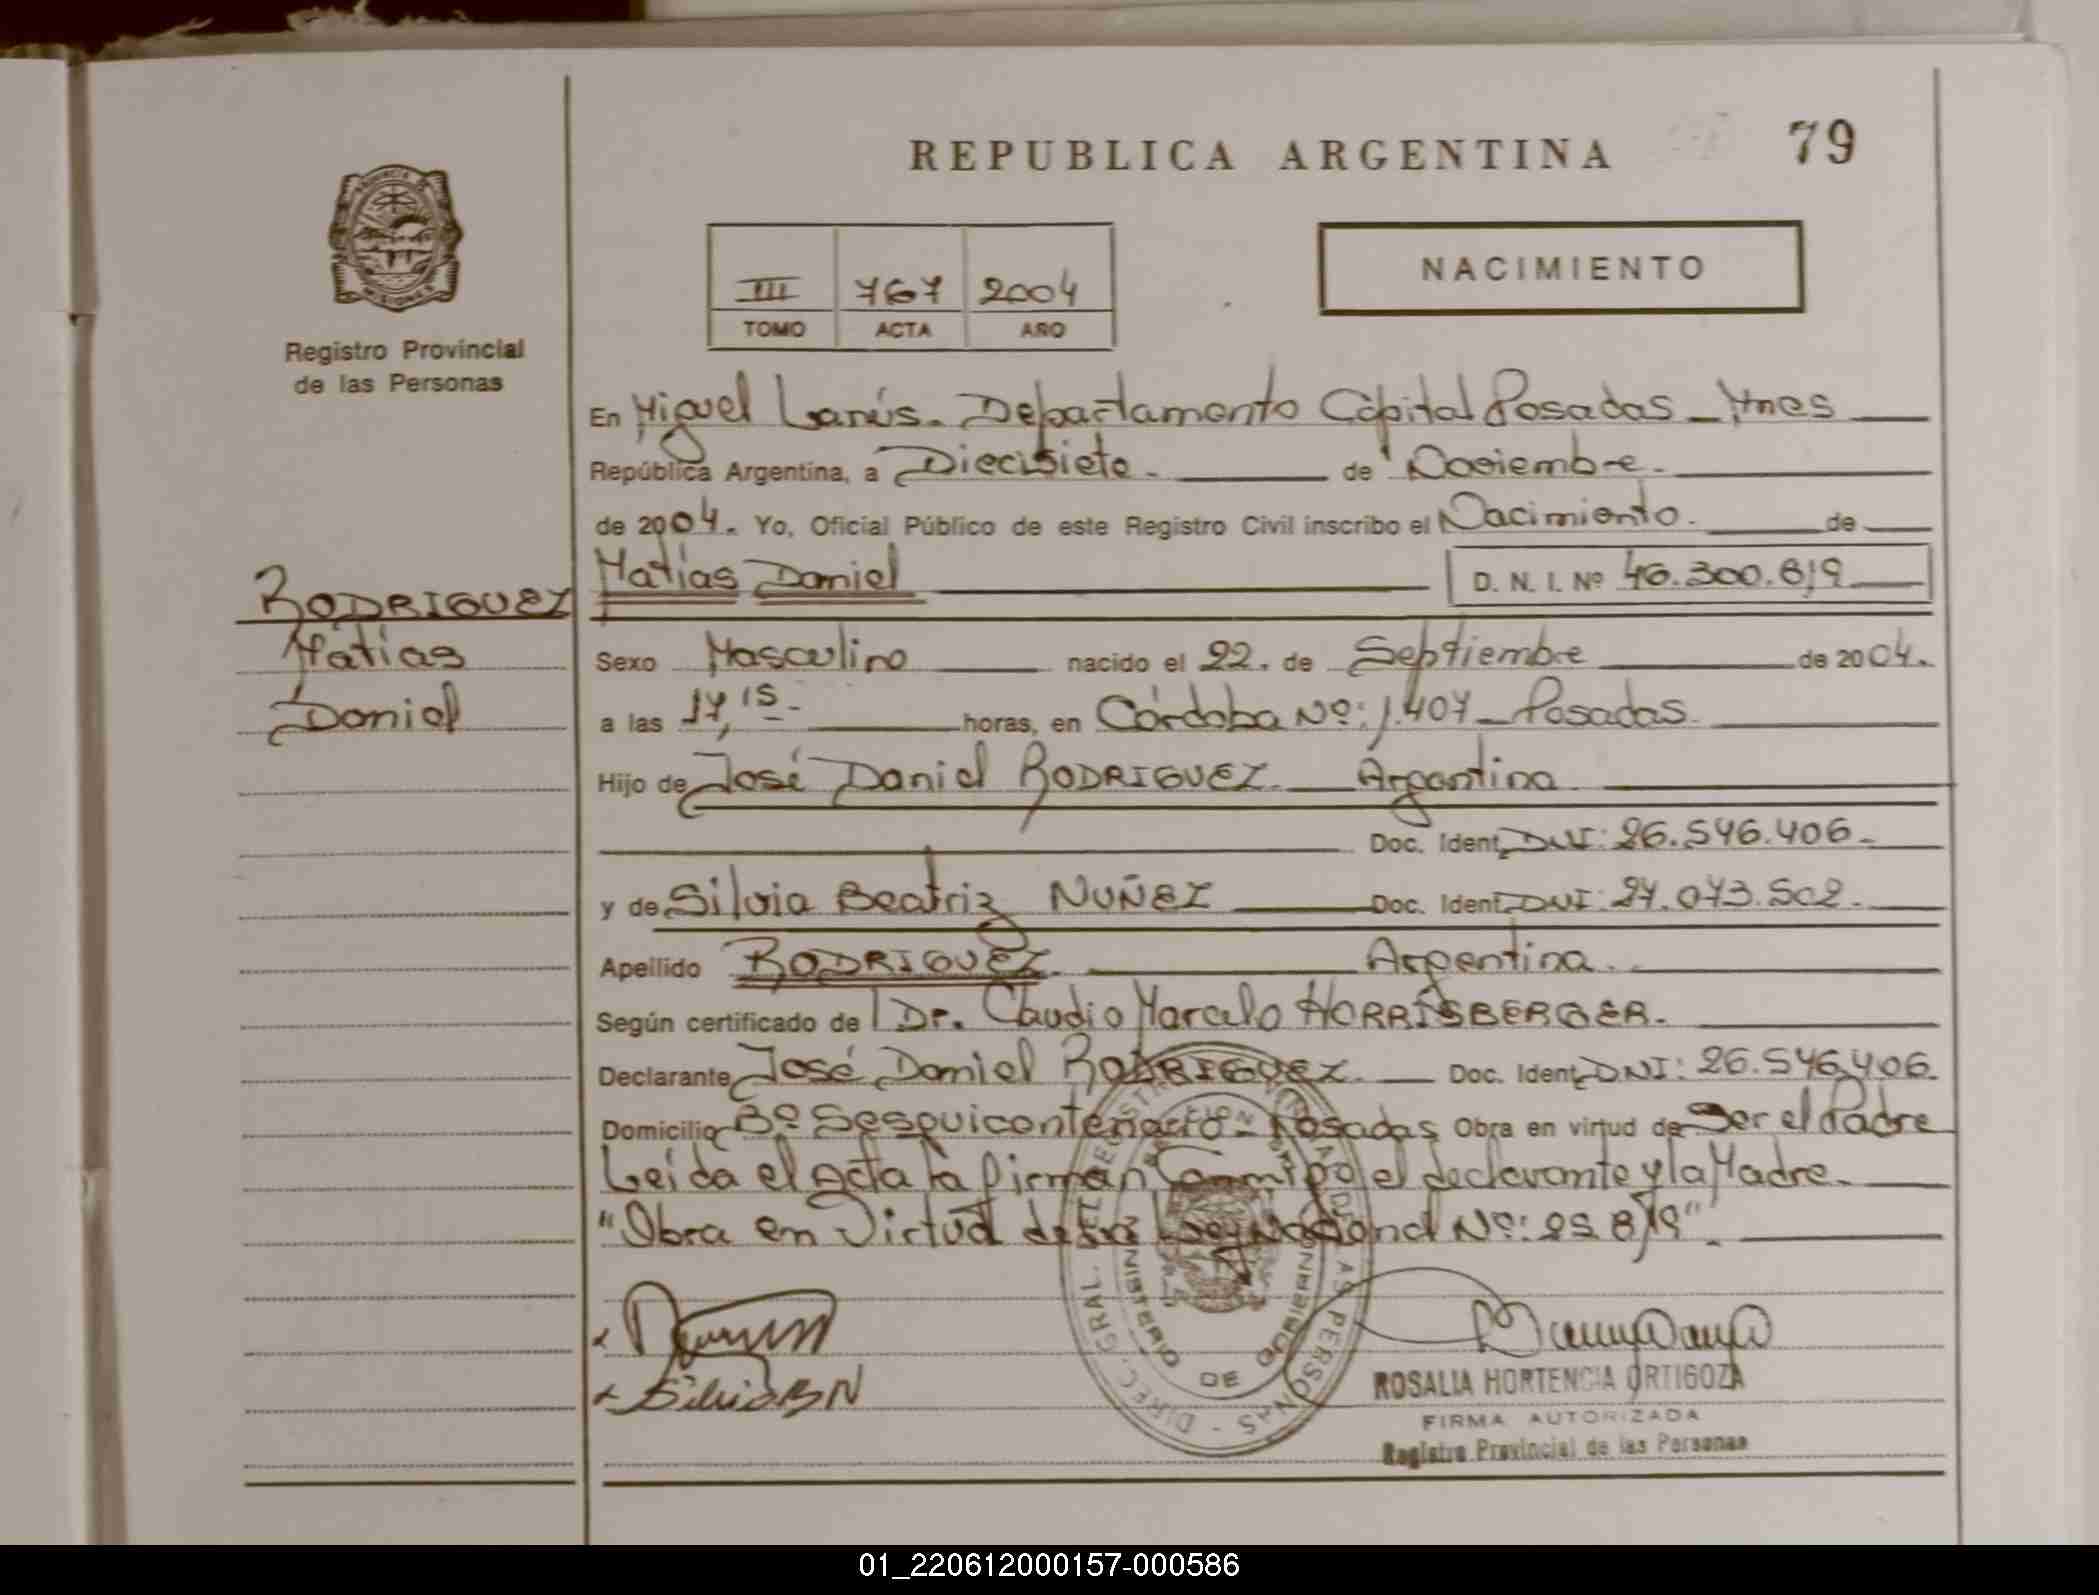 REPUBLICA ARGENTINA 79
PROVINCIA DE MISIONES
Registro Provincial
de las Personas
III 767 2004
TOMO ACTA AÑO
NACIMIENTO
En Miguel Lanús. Departamento Capital Posadas _ Mnes
República Argentina, a Diecisiete. de Noviembre.
de 2004. Yo, Oficial Público de este Registro Civil inscribo el Nacimiento. de
Matías Daniel D. N. I. Nº 46.300.819
RODRIGUEZ
Matías
Daniel
Sexo Masculino nacido el 22. de Septiembre de 2004.
a las 17,15- horas, en Córdoba Nº: 1.407_ Posadas.
Hijo de José Daniel RODRIGUEZ. Argentina.
Doc. Ident. DNI: 26.546.406.
y de Silvia Beatriz NUÑEZ Doc. Ident. DNI: 27.073.502.
Apellido RODRIGUEZ. Argentina.
Según certificado de Dr. Claudio Marcelo HORRISBERGER.
Declarante José Daniel RODRIGUEZ. Doc. Ident. DNI: 26.546.406.
Domicilio Bº Sesquicentenario_ Posadas Obra en virtud de Ser el Padre
Leída el acta la firman Conmigo el declarante y la Madre.
"Obra en Virtud de la Ley Nacional Nº: 25.819".
Silvia BN
DIREC. GRAL. DEL REGISTRO PROVINCIAL DE LAS PERSONAS
MINISTERIO DE GOBIERNO
ROSALIA HORTENCIA ORTIGOZA
FIRMA AUTORIZADA
Registro Provincial de las Personas
01_220612000157-000586